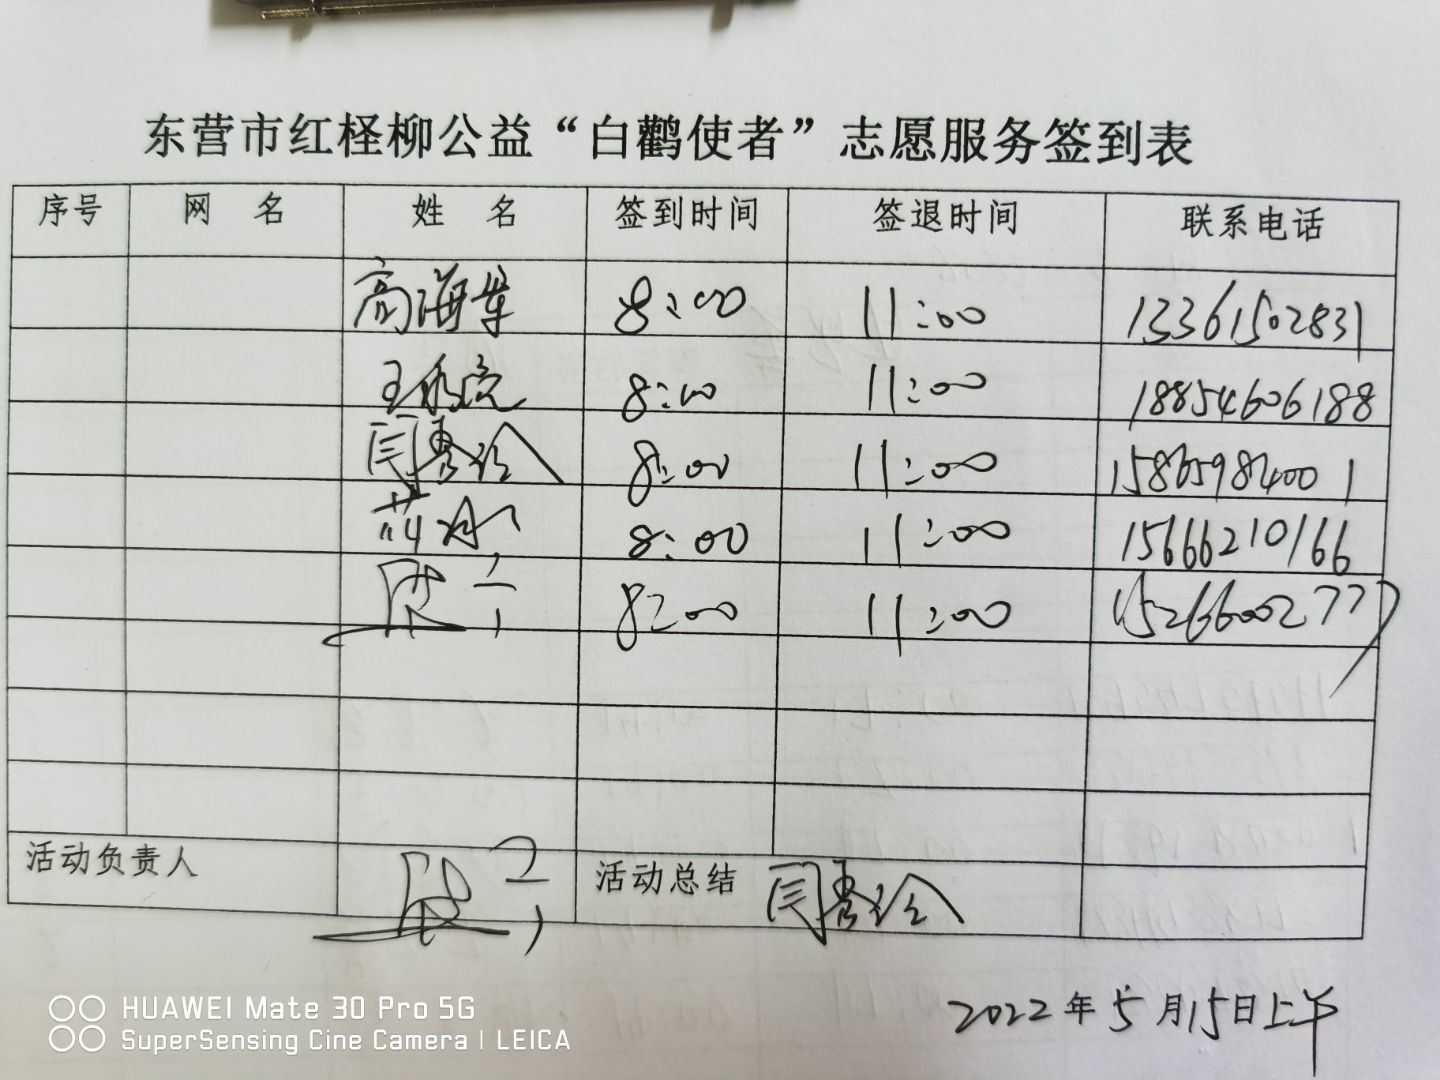 东营市红柽柳公益“白鹳使者”志愿服务签到表
序号 网 名 姓 名 签到时间 签退时间 联系电话
高海 8:00 11:00 13361502831
王 8:00 11:00 18854606188
闫秀玲 8:00 11:00 15865984001
8:00 11:00 15666210166
8:00 11:00 15266002777
活动负责人 活动总结 闫秀玲
2022年5月15日上午
HUAWEI Mate 30 Pro 5G
SuperSensing Cine Camera | LEICA